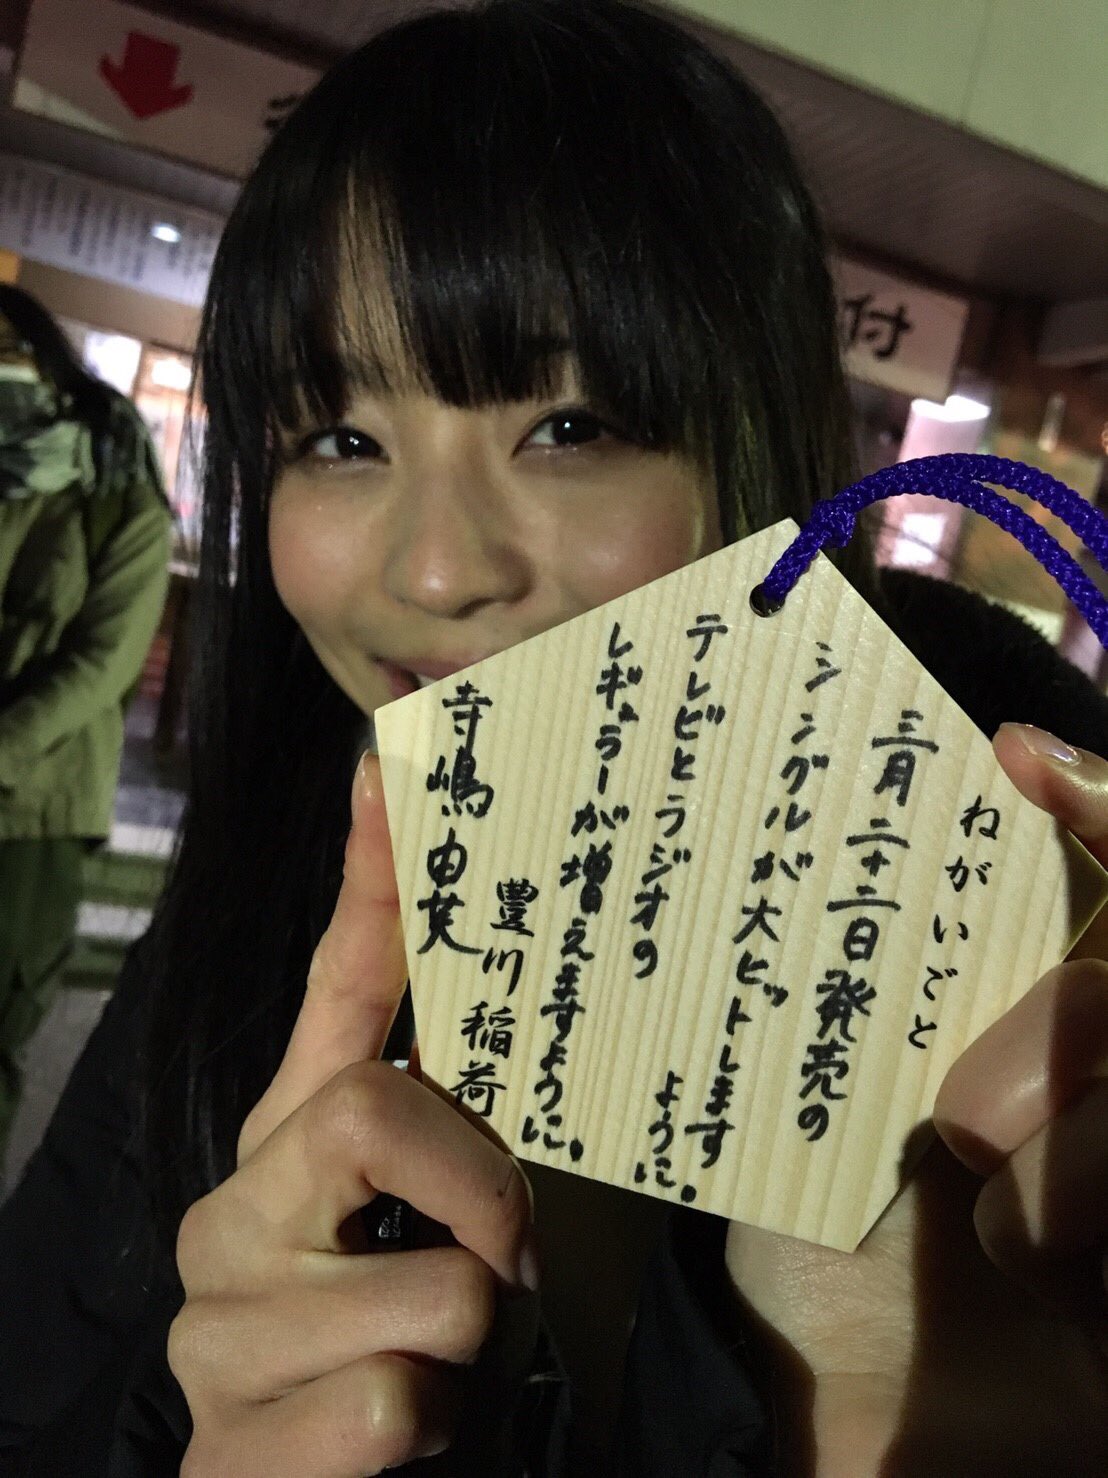 ねがいごと
三月二十二日発売の
シングルが大ヒットします
ように。
テレビとラジオの
レギュラーが増えますように。
豊川稲荷
寺嶋由芙
付